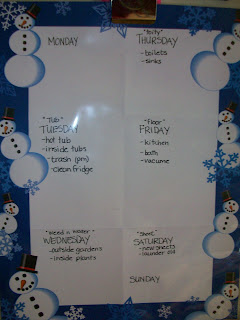 MONDAY
"Tub"
TUESDAY
-hot tub
-inside tubs
-trash (pm)
-clean fridge
"Weed n Water"
WEDNESDAY
-outside gardens
-inside plants
"Potty"
THURSDAY
-toilets
-sinks
"Floor"
FRIDAY
-kitchen
-bath
-vacume
"Sheet"
SATURDAY
-new sheets
-launder old
SUNDAY